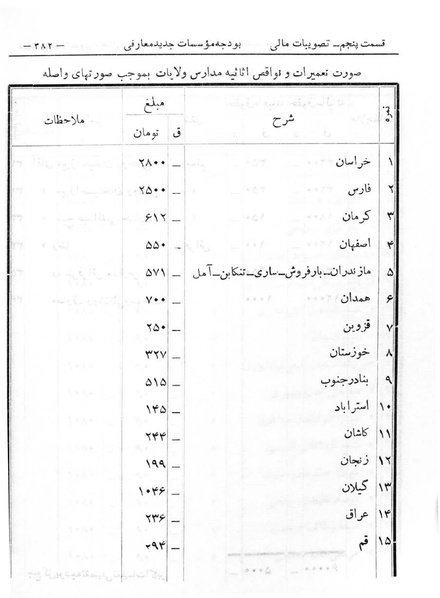 قسمت پنجم ــ تصویبات مالی بودجه مؤسسات جدید معارفی — ۳۸۲ —
صورت تعمیرات و نواقص اثاثیه مدارس ولایات بموجب صورتهای واصله
نمره شرح مبلغ ملاحظات
تومان ق
۱ خراسان ۲۸۰۰ ــ
۲ فارس ۲۵۰۰ ــ
۳ کرمان ۶۱۲ ــ
۴ اصفهان ۵۵۰ ــ
۵ مازندران ــ بارفروش ــ ساری ــ تنکابن ــ آمل ۵۷۱ ــ
۶ همدان ۷۰۰ ــ
۷ قزوین ۲۵۰ ــ
۸ خوزستان ۳۲۷ ــ
۹ بنادر جنوب ۵۱۵ ــ
۱۰ استراباد ۱۴۵ ــ
۱۱ کاشان ۲۴۴ ــ
۱۲ زنجان ۱۹۹ ــ
۱۳ گیلان ۱۰۴۶ ــ
۱۴ عراق ۲۳۶ ــ
۱۵ قم ۲۹۴ ــ